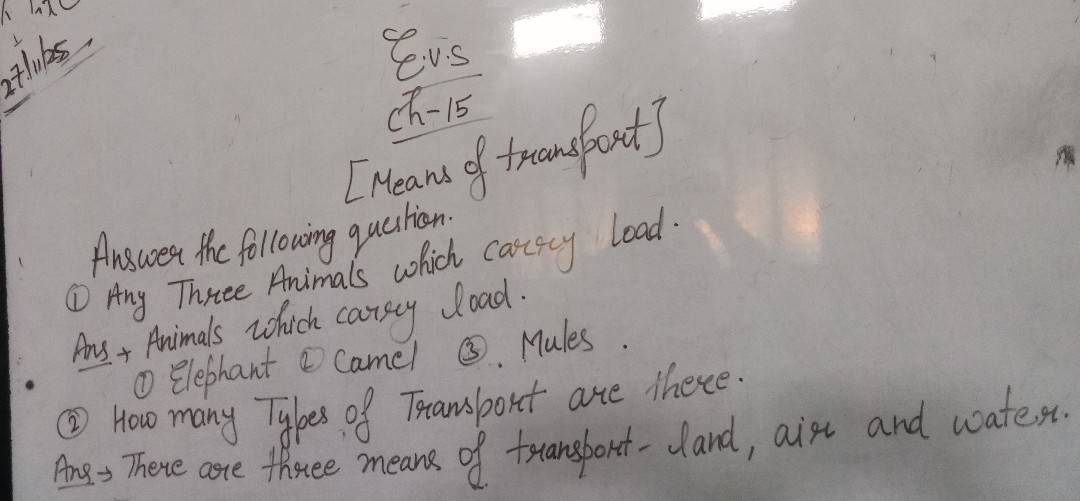 27/11/25
E.V.S
Ch-15
[Means of transport]
Answer the following question.
① Any Three Animals which carry load.
Ans → Animals which carry load.
① Elephant ② Camel ③. Mules.
② How many Types of Transport are there.
Ans → There are three means of transport - land, air and water.